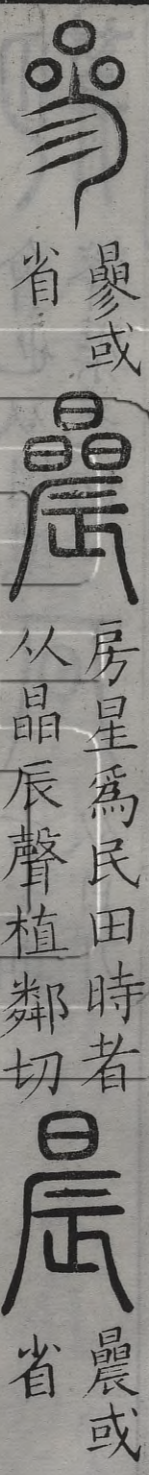 曑
曑或
省
曟
房星爲民田時者
从晶辰聲植鄰切
晨
曟或
省